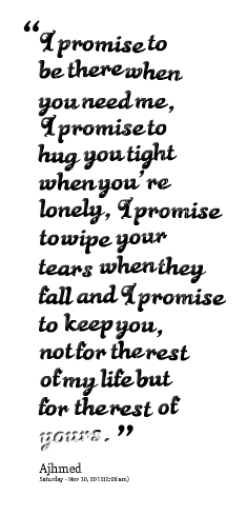 “I promise to
be there when
you need me,
I promise to
hug you tight
when you're
lonely, I promise
to wipe your
tears when they
fall and I promise
to keep you,
not for the rest
of my life but
for the rest of
yours.”
Ajhmed